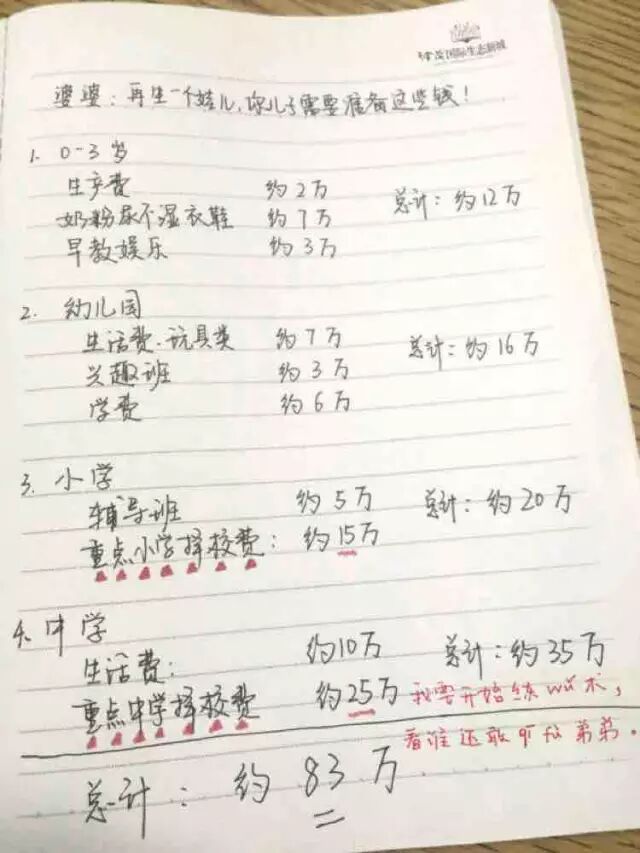 国际生态新城
婆婆：再生一个娃儿，你儿子需要准备这些钱！
1. 0-3岁
生产费 约2万
奶粉尿不湿衣鞋 约7万 总计：约12万
早教娱乐 约3万
2. 幼儿园
生活费.玩具类 约7万 总计：约16万
兴趣班 约3万
学费 约6万
3. 小学
辅导班 约5万 总计：约20万
重点小学择校费： 约15万
4. 中学
生活费： 约10万 总计：约35万
重点中学择校费 约25万 我要开始练wu术，
看谁还敢 弟弟。
总计：约83万